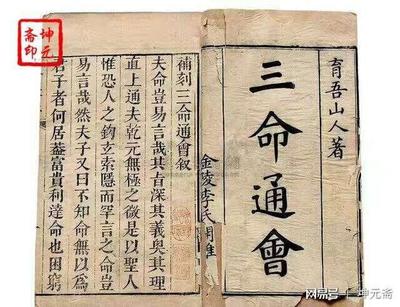 坤元
斋印
育吾山人著
三命通會
金陵李氏
補刻三命通會叙
夫命豈易言哉其旨深其義奧其理
直上通夫乾元無極之微是以聖人
惟恐人之鉤玄索隱而罕言之命豈
易言哉然夫子又曰不知命無以爲
君子者何居葢富貴利達命也困窮
网易号 | 坤元斋